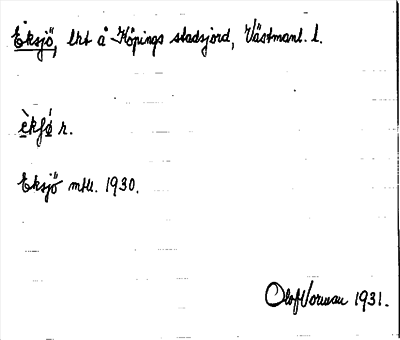 Eksjö, lht å Köpings stadsjord, Västmanl. l.
èkʃǿ r.
Eksjö mtll. 1930.
Olof Vorman 1931.